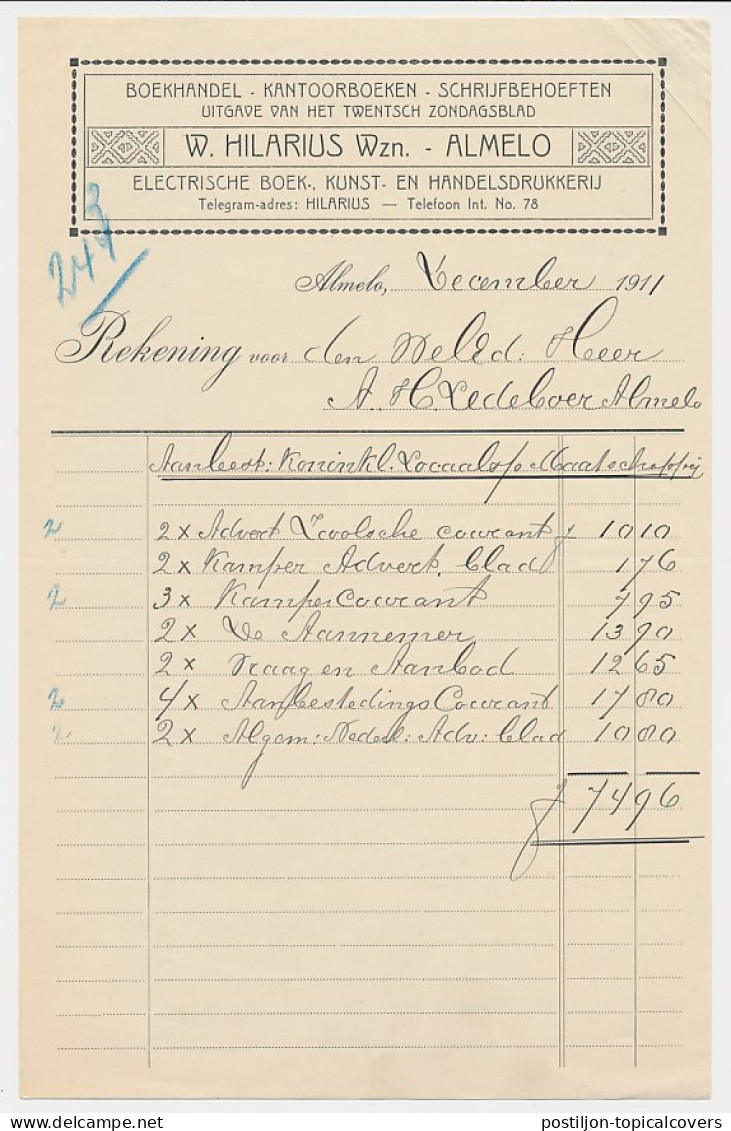 BOEKHANDEL - KANTOORBOEKEN - SCHRIJFBEHOEFTEN
UITGAVE VAN HET TWENTSCH ZONDAGSBLAD
W. HILARIUS Wzn. - ALMELO
ELECTRISCHE BOEK-, KUNST- EN HANDELSDRUKKERIJ
Telegram-adres: HILARIUS — Telefoon Int. No. 78
Almelo, December 1911
Rekening voor den WelEd: Heer
A. H. Ledeboer Almelo
Aanbest: Koninkl. Locaalsp. Maatschappij
2 2 x Advert Zwolsche courant f 10 10
2 x Kamper Advert. blad 1 76
2 3 x Kamper Courant 7 95
2 x De Aannemer 13 90
2 x Vraag en Aanbod 12 65
2 4 x Aanbestedings Courant 17 80
2 2 x Algem: Nederl: Adv: blad 10 80
f 74 96
postiljon-topicalcovers
postiljon-topicalcovers